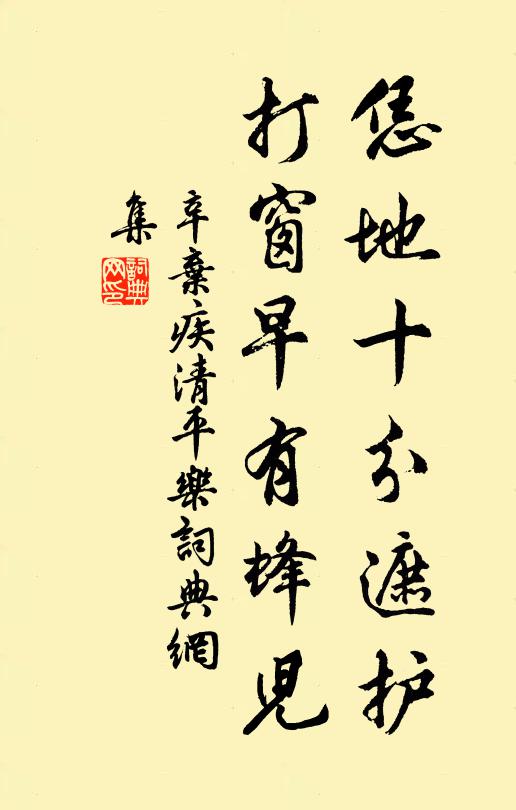 恁地十分遮护
打窗早有蜂児
辛棄疾清平樂詞典網
集
詞典
网印